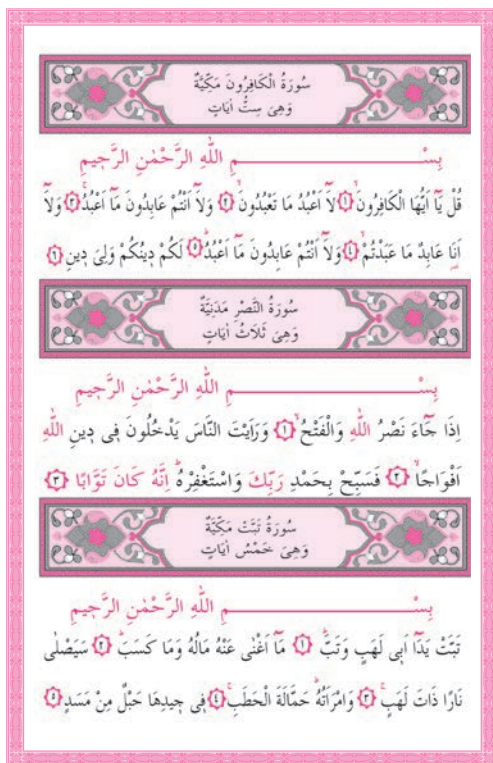 سُورَةُ الْكَافِرُونَ مَكِّيَّةٌ
وَهِىَ سِتُّ اٰيَاتٍ
بِسْمِ اللّٰهِ الرَّحْمٰنِ الرَّحٖيمِ
قُلْ يَٓا اَيُّهَا الْكَافِرُونَۙ ﴿١﴾ لَٓا اَعْبُدُ مَا تَعْبُدُونَۙ ﴿٢﴾ وَلَٓا اَنْتُمْ عَابِدُونَ مَٓا اَعْبُدُۚ ﴿٣﴾ وَلَٓا
اَنَا۬ عَابِدٌ مَا عَبَدْتُمْۙ ﴿٤﴾ وَلَٓا اَنْتُمْ عَابِدُونَ مَٓا اَعْبُدُۜ ﴿٥﴾ لَكُمْ دٖينُكُمْ وَلِىَ دٖينِ ﴿٦﴾
سُورَةُ النَّصْرِ مَدَنِيَّةٌ
وَهِىَ ثَلَاثُ اٰيَاتٍ
بِسْمِ اللّٰهِ الرَّحْمٰنِ الرَّحٖيمِ
اِذَا جَٓاءَ نَصْرُ اللّٰهِ وَالْفَتْحُۙ ﴿١﴾ وَرَاَيْتَ النَّاسَ يَدْخُلُونَ فٖى دٖينِ اللّٰهِ
اَفْوَاجًاۙ ﴿٢﴾ فَسَبِّحْ بِحَمْدِ رَبِّكَ وَاسْتَغْفِرْهُۜ اِنَّهُ كَانَ تَوَّابًا ﴿٣﴾
سُورَةُ تَبَّتْ مَكِّيَّةٌ
وَهِىَ خَمْسُ اٰيَاتٍ
بِسْمِ اللّٰهِ الرَّحْمٰنِ الرَّحٖيمِ
تَبَّتْ يَدَٓا اَبٖى لَهَبٍ وَتَبَّۜ ﴿١﴾ مَٓا اَغْنٰى عَنْهُ مَالُهُ وَمَا كَسَبَۜ ﴿٢﴾ سَيَصْلٰى
نَارًا ذَاتَ لَهَبٍۚ ﴿٣﴾ وَامْرَاَتُهُۜ حَمَّالَةَ الْحَطَبِۚ ﴿٤﴾ فٖى جٖيدِهَا حَبْلٌ مِنْ مَسَدٍ ﴿٥﴾